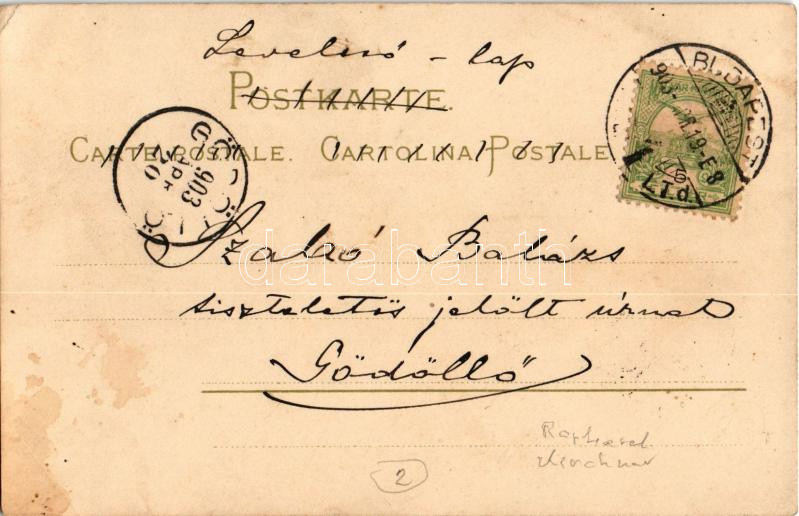 Levelező - lap
POSTKARTE.
CARTE POSTALE. CARTOLINA POSTALE
BUDAPEST
903
19-E8
GÖDÖLLŐ
903
ÁPR
20
Szabó Balázs
tiszteletes jelölt úrnak
Gödöllő
darabanth
Raphael
Kirchner
2